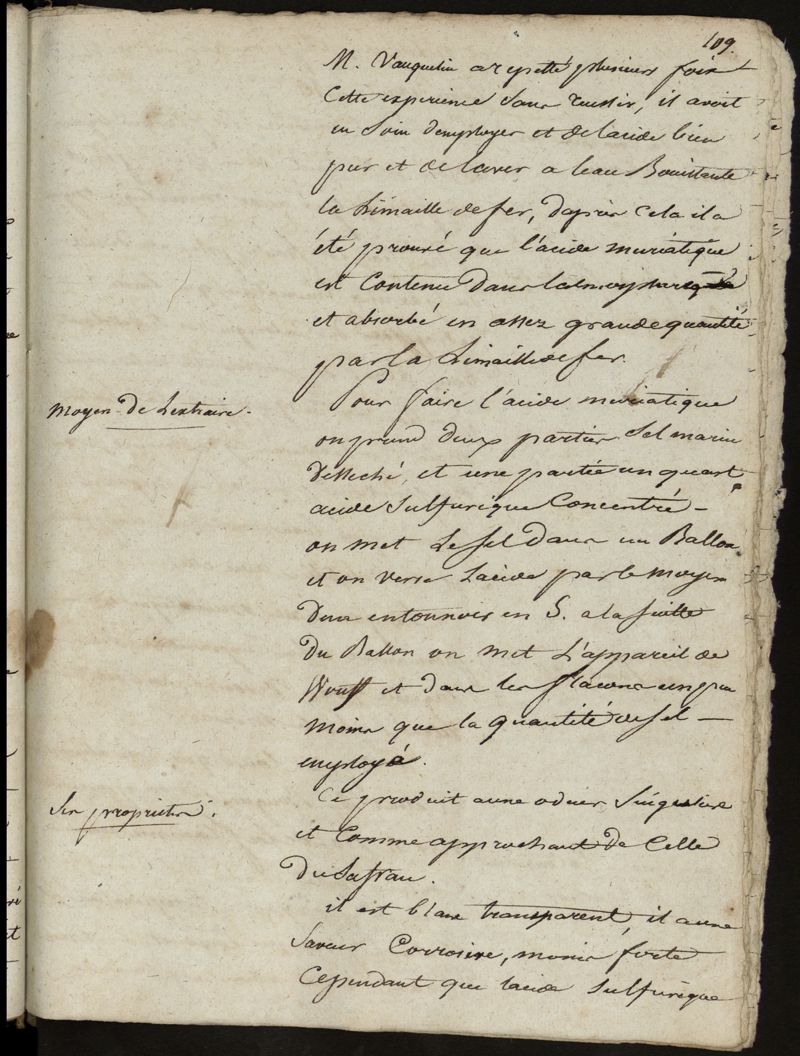 109.
M. Vauquelin a repetté plusieurs fois
Cette experience Sans reussir, il avoit
eu Soin d'employer et de lacide bien
pur et de laver a leau Bouillante
la Limaille de fer, dapres cela il a
été prouvé que l'acide muriatique
est Contenu dans latmosphere
et absorbé en assez grande quantité
par la Limaille de fer.
Moyen de Lextraire.
Pour faire l'acide muriatique
on prend deux parties Sel marin
desseché, et une partie un quart
acide Sulfurique Concentré –
on met Le sel dans un Ballon
et on verse Lacide par le moyen
dun entonnoir en S. a la suitte
du Ballon on met L'appareil de
Woulf et dans les flacons un peu
moins que la quantité de sel –
employé.
Ses proprietes.
Ce produit a une odeur Singuliere
et Comme approchant de Celle
du Safran.
il est blanc transparent, il a une
Saveur Corrosive, moins forte
Cependant que lacide Sulfurique